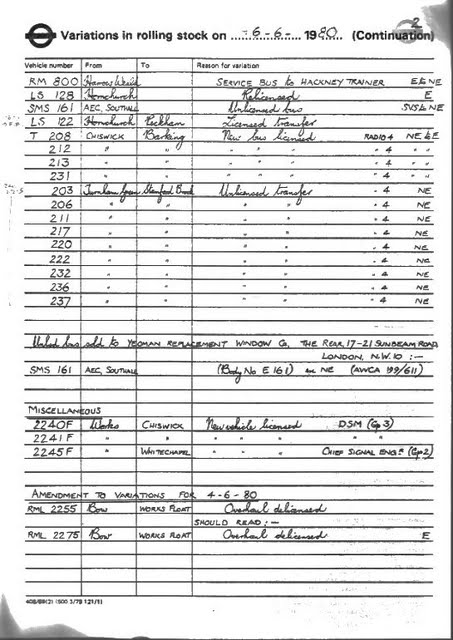 2
Variations in rolling stock on 6-6- 1980 (Continuation)
Vehicle number From To Reason for variation
RM 800 Harrow Weald SERVICE BUS to HACKNEY TRAINER E & NE
LS 128 Hornchurch Relicensed E
SMS 161 AEC, SOUTHALL Unlicensed bus SVS & NE
LS 122 Hornchurch Peckham Licensed transfer
T 208 CHISWICK Barking New bus licensed RADIO 4 NE & E
212 " " " " " " 4 " "
213 " " " " " " 4 " "
231 " " " " " " 4 " "
203 Turnham Green Stamford Brook Unlicensed transfer " 4 NE
206 " " " " " 4 NE
211 " " " " " 4 NE
217 " " " " " 4 NE
220 " " " " " 4 NE
222 " " " " " 4 NE
232 " " " " " 4 NE
236 " " " " " 4 NE
237 " " " " " 4 NE
sold to YEOMAN REPLACEMENT WINDOW Co, THE REAR, 17-21 SUNBEAM ROAD
LONDON, N.W.10 :-
SMS 161 AEC, SOUTHALL (Body No E 161) ex NE (AWCA 199/611)
MISCELLANEOUS
2240F Works CHISWICK New vehicle licensed DSM (Gp 3)
2241F " " " " " " "
2245F " WHITECHAPEL " " " CHIEF SIGNAL ENGR (Gp 2)
AMENDMENT TO VARIATIONS FOR 4-6-80
RML 2255 Bow WORKS FLOAT Overhaul delicensed
SHOULD READ :-
RML 2275 Bow WORKS FLOAT Overhaul delicensed E